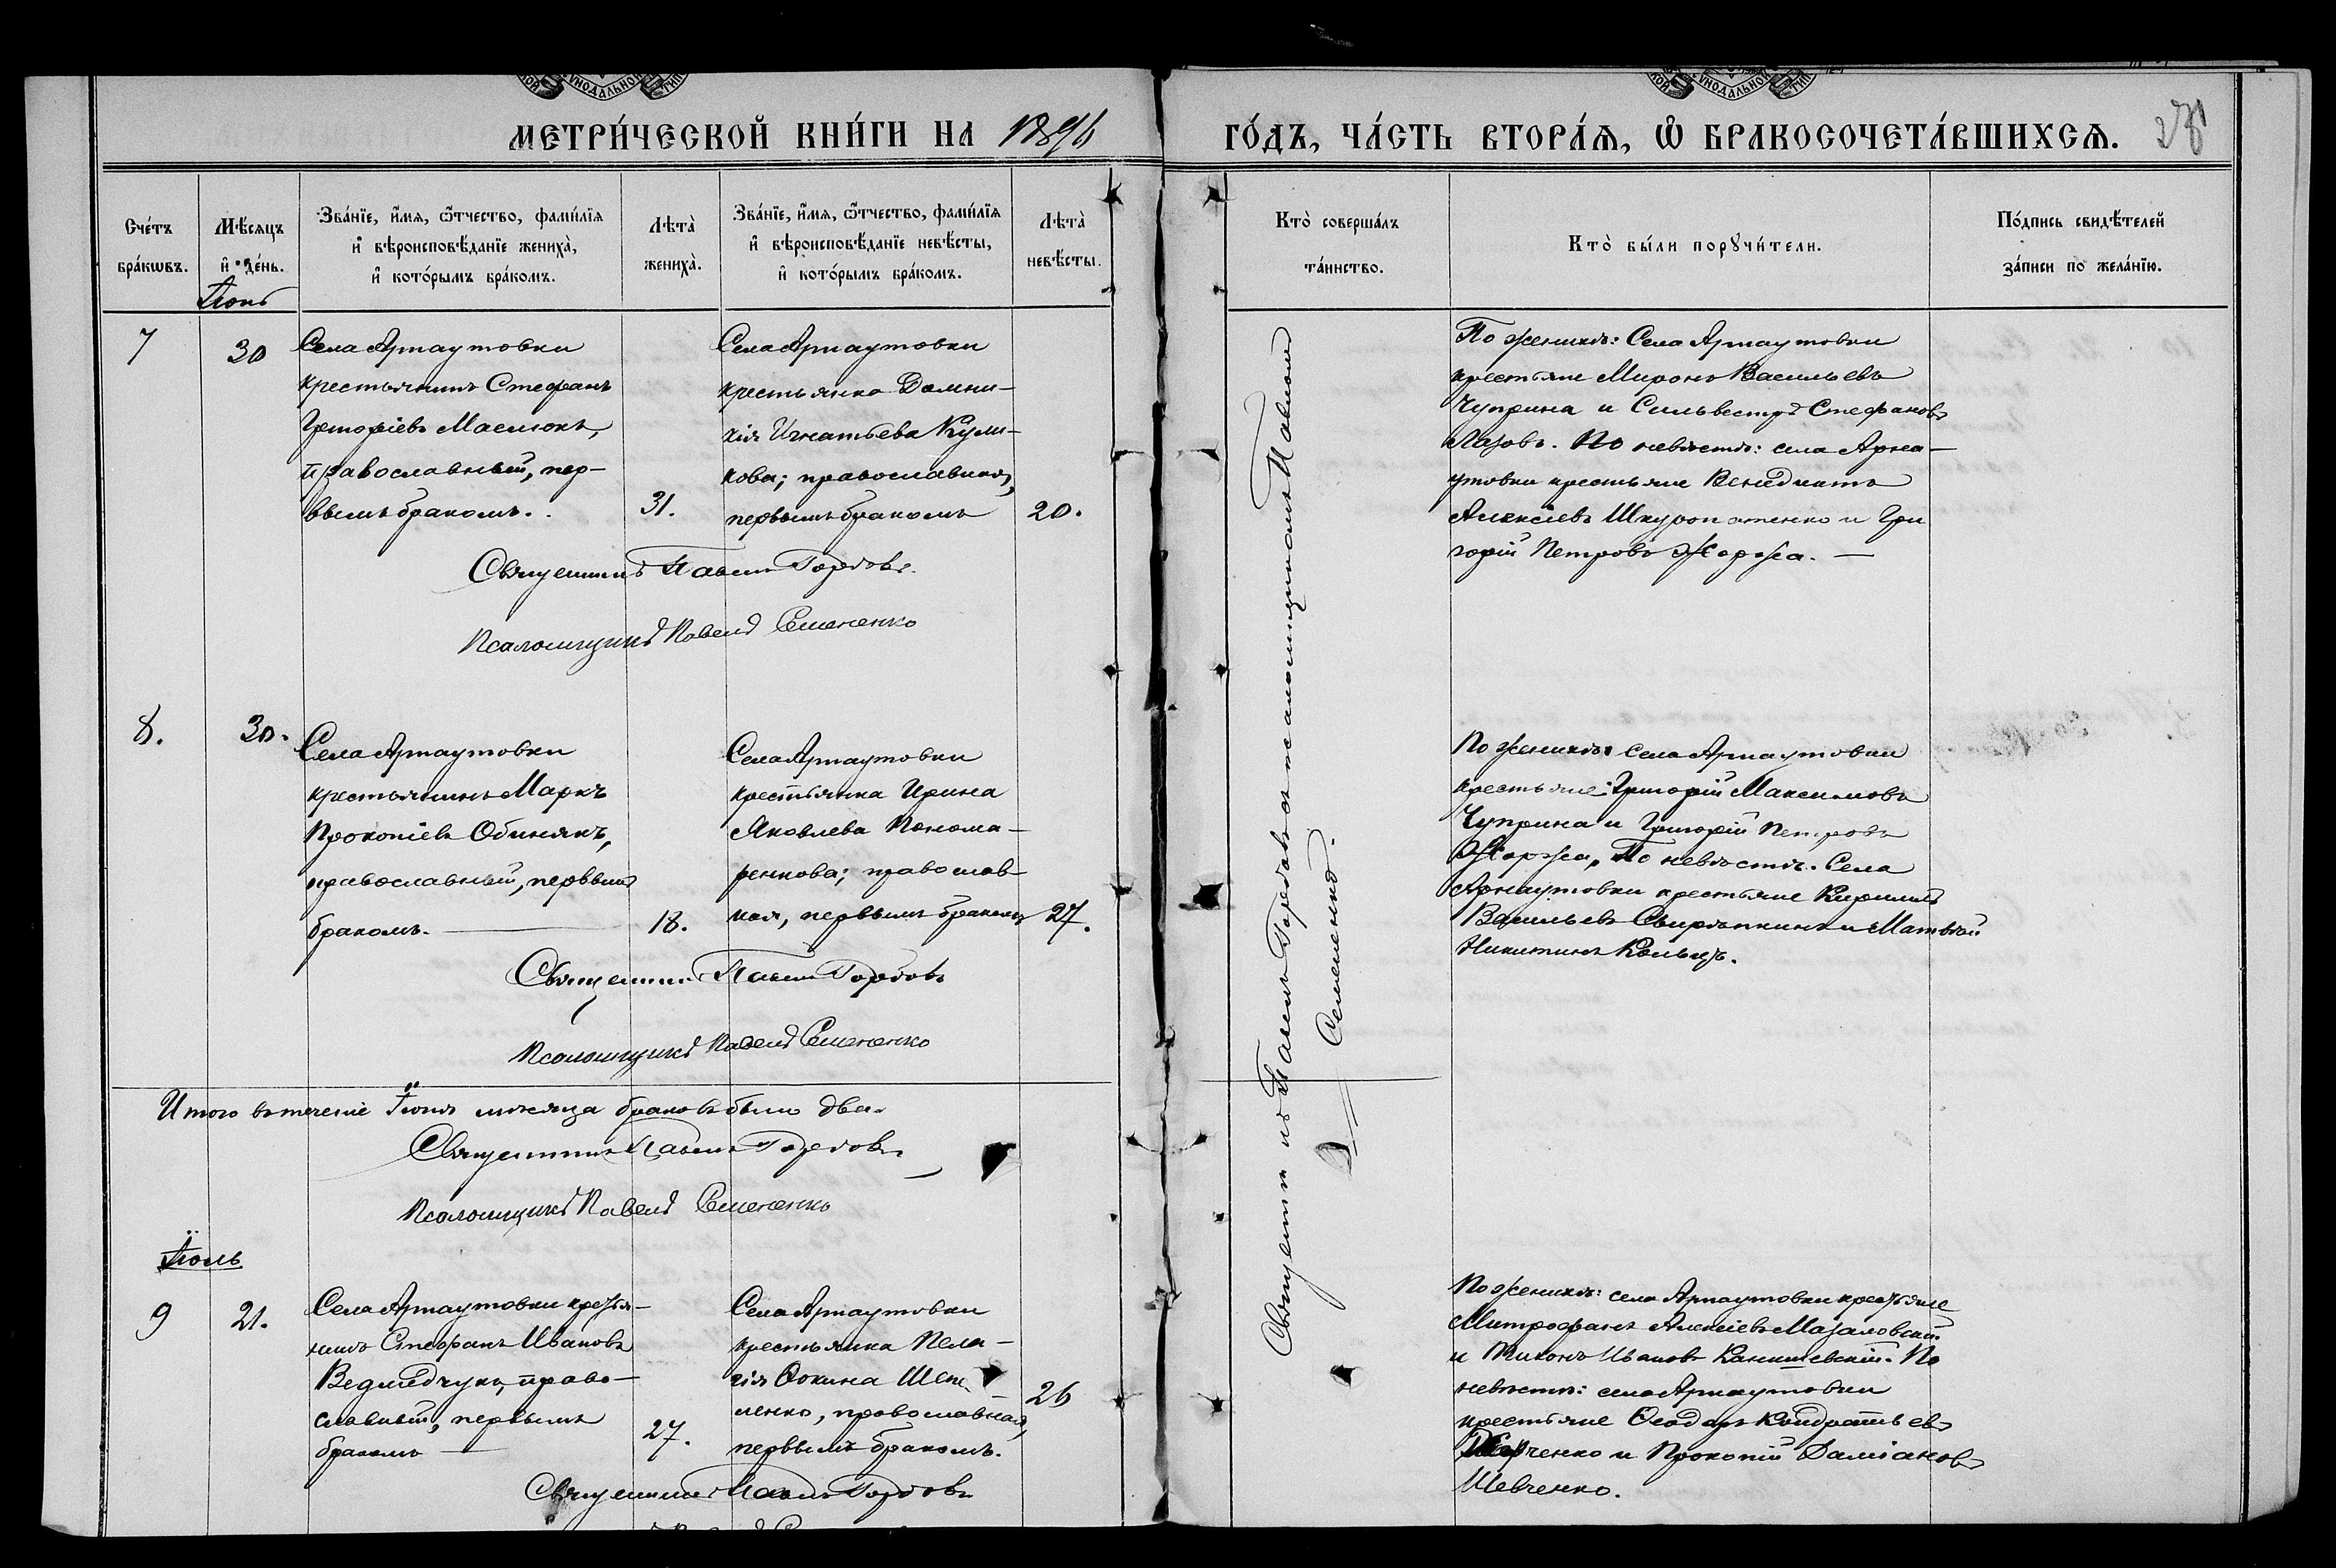 МЕТРИ́ЧЕСКОЙ КНИ́ГИ НА 1896
ГО́ДЪ, ЧА́СТЬ ВТОРА́Я, Ѡ БРАКОСОЧЕТА́ВШИХСЯ.
Сче́тъ
бра́кѡвъ.
Мѣ́сяцъ
и де́нь.
Іюнь
Зва́нїе, и́мя, ѻ҆́тчество, фами́лїя
и вѣроисповѣ́данїе жениха̀,
и кото́рымъ бра́комъ.
Лѣта̀
жениха̀.
Зва́нїе, и́мя, ѻ҆́тчество, фами́лїя
и вѣроисповѣ́данїе невѣ́сты,
и кото́рымъ бра́комъ.
Лѣта̀
невѣ́сты.
Кто̀ соверша́лъ
та́инство.
Кто̀ бы́ли порꙋчи́тели.
По́дпись свидѣ́телей
за́писи по жела́нїю.
7
30
Села Арнаутовки
крестьянинъ Стефанъ
Григоріевъ Маслюкъ,
православный, пер-
вымъ бракомъ.
31.
Села Арнаутовки
крестьянка Домни-
кія Игнатьева Кули-
кова; православная,
первымъ бракомъ
20.
Священникъ Павелъ Горбовъ.
Псаломщикъ Павелъ Семененко
По женихѣ: Села Арнаутовки
крестьяне Миронъ Васильевъ
Чуприна и Сильвестръ Стефановъ
Лазовъ. По невѣстѣ: села Арна-
утовки крестьяне Венедиктъ
Алексіевъ Шкуропатенко и Гри
горій Петровъ Жоржа. —
8.
30.
Села Арнаутовки
крестьянинъ Маркъ
Прокопіевъ Обинякъ,
православный, первымъ
бракомъ.
18.
Села Арнаутовки
крестьянка Ирина
Яковлева Понома-
ренкова; православ-
ная, первымъ бракомъ
27.
Священникъ Павелъ Горбовъ
Псаломщикъ Павелъ Семененко
По женихѣ: Села Арнаутовки
крестьяне: Григорій Максимовъ
Чуприна и Григорій Петровъ
Жоржа, По невѣстѣ. Села
Арнаутовки крестьяне Кириллъ
Васильевъ Свиряпкинъ и Матвѣй
Никитинъ Кольцъ.
Итого въ теченіе Іюня мѣсяца браковъ было два.
Священникъ Павелъ Горбовъ
Псаломщикъ Павелъ Семененко
Іюль
9
21.
Села Арнаутовки кресья-
нинъ Стефанъ Ивановъ
Ведмедчукъ, право-
славный, первымъ
бракомъ —
27.
Села Арнаутовки
крестьянка Пела-
гія Фокина
ленко, православная,
первымъ бракомъ.
26
Священникъ Павелъ Горбовъ
По женихѣ: села Арнаутовки крестьяне
Митрофанъ Алексіевъ Мазаловскій
и Тихонъ Ивановъ Каниевскій. По
невѣстѣ: села Арнаутовки
крестьяне Ѳеодоръ Кондратьевъ
и Прокопій Даміановъ
Шевченко.
Священникъ Павелъ Горбовъ съ псаломщикомъ Павломъ
Семененко.